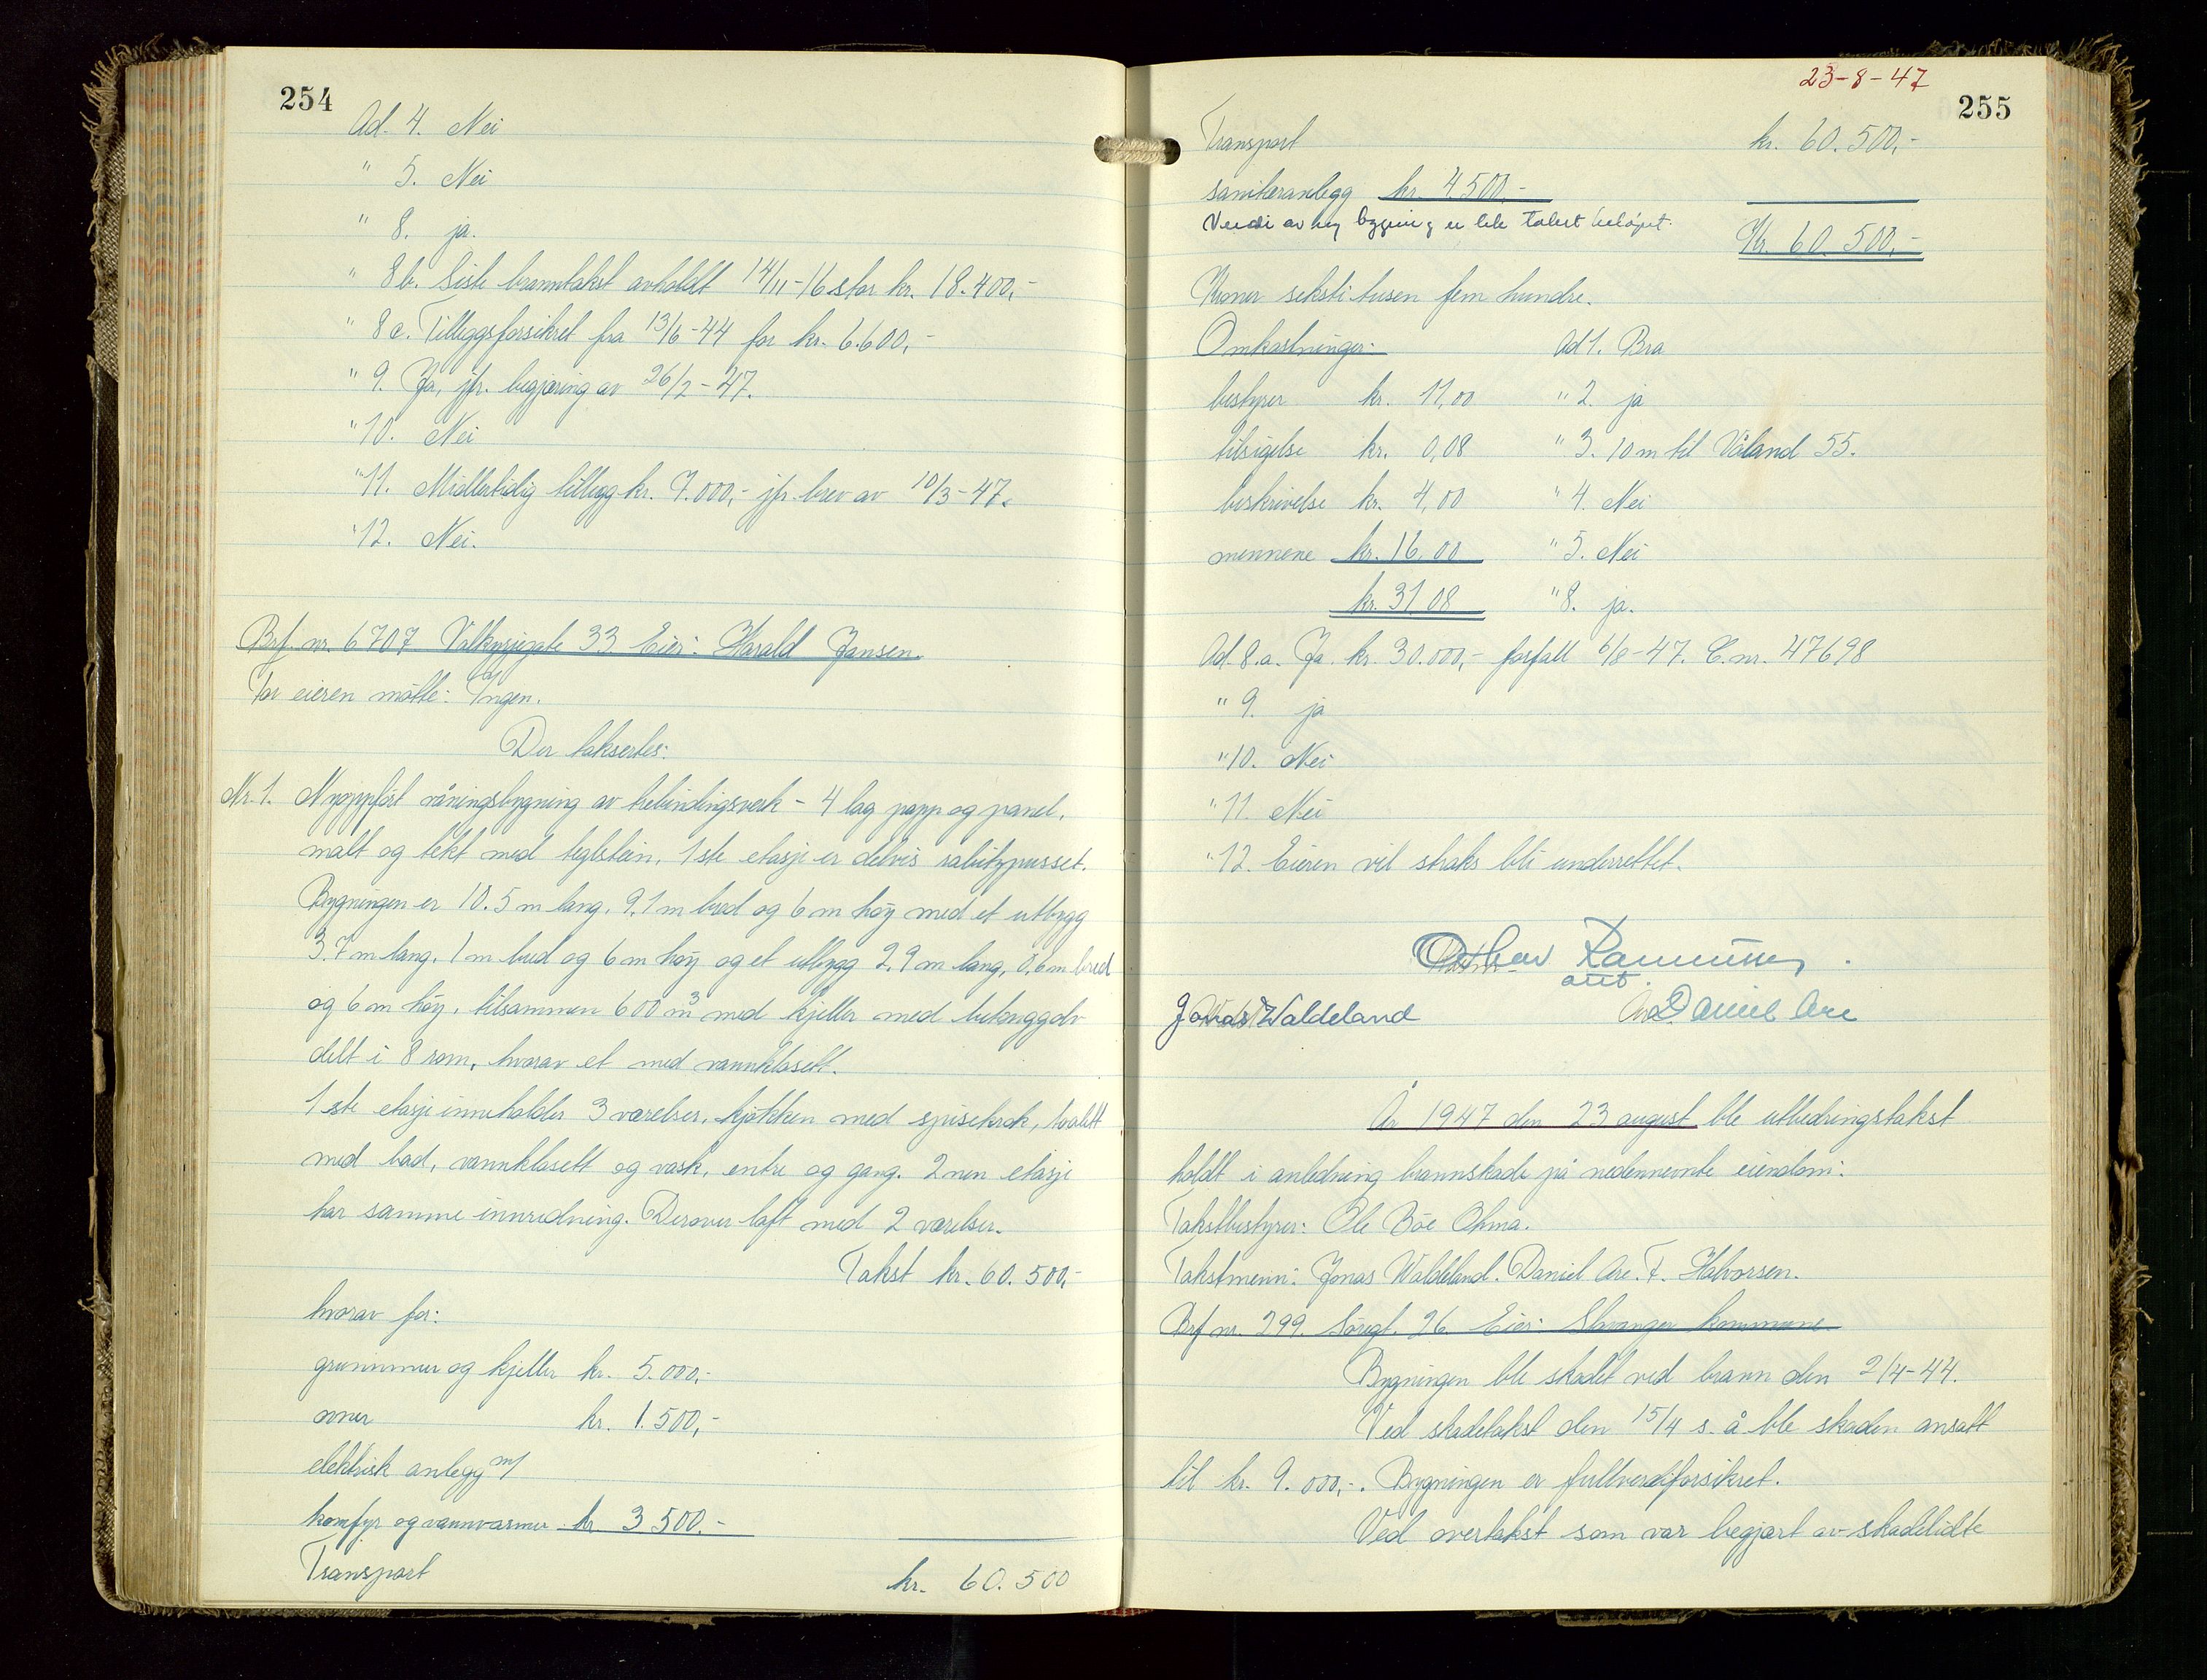 254
Ad. 4. Nei
" 5. Nei
" 8. ja.
" 8b. Siste branntakst avholdt 14/11-16 stor kr. 18.400,-
" 8c. Tilleggsforsikret fra 13/6-44 for kr. 6.600,-
" 9. Ja, jfr. begjæring av 26/2-47.
" 10. Nei
" 11. Midlertidig tillegg kr. 9.000,- jfr. brev av 10/3-47.
" 12. Nei.
Brf. nr. 6707 Valkyrjegate 33 Eier: Harald Jansen.
For eieren møtte: Ingen.
Der takseres:
Nr. 1. Nyoppført våningsbygning av trebindingsverk - 4 lag papp og panel,
malt og tekt med teglstein, 1ste etasje er delvis rabitzpusset.
Bygningen er 10.5 m lang, 9,1 m bred og 6 m høy med et utbygg
3.7 m lang, 1 m bred og 6 m høy og et utbygg 2.9 m lang, 0,6 m bred
og 6 m høy, tilsammen 600 m³ med kjeller med betonggolv
delt i 8 rom, hvorav et med vannklosett.
1ste etasje inneholder 3 værelser, kjøkken med spisekrok, toalett
med bad, vannklosett og vask, entre og gang. 2nen etasje
har samme innredning. Derover loft med 2 værelser.
Takst kr. 60.500,-
hvorav for:
grunnmur og kjeller kr. 5.000,-
ovner kr. 1.500,-
elektrisk anlegg m/
komfyr og vannvarmer kr. 3 500.-
Transport kr. 60.500
23-8-47
255
Transport kr. 60.500,-
saniteranlegg kr. 4.500,-
Verdi av ny bygning er hele takst beløpet.
Kr. 60.500,-
Kroner seksti tusen fem hundre.
Omkostninger: Ad 1. Bra
bestyrer kr. 11,00 " 2. ja
tilsigelse kr. 0,08 " 3. 10 m til Våland 55.
beskrivelse kr. 4,00 " 4. Nei
mennene kr. 16,00 " 5. Nei
kr. 31,08 " 8. ja.
Ad. 8.a. Ja kr. 30.000,- forfall 6/8-47. C.nr. 47698
" 9. ja
" 10. Nei
" 11. Nei
" 12. Eieren vil straks bli underrettet.
Rasmussen
att.
Jonas Waldeland Daniel Are
År 1947 den 23 august ble utbedringstakst
holdt i anledning brannskade på nedennevnte eiendom:
Takstbestyrer: Ole Bøe Ohma.
Takstmenn: Jonas Waldeland. Daniel Are. F. Halvorsen.
Brf nr. 299. Søregt. 26. Eier: Stavanger kommune.
Bygningen ble skadet ved brann den 2/4-44.
Ved skadetakst den 15/4 s. å ble skaden ansatt
til kr. 9.000,-. Bygningen er fullverdiforsikret.
Ved overtakst som var begjært av skadelidte